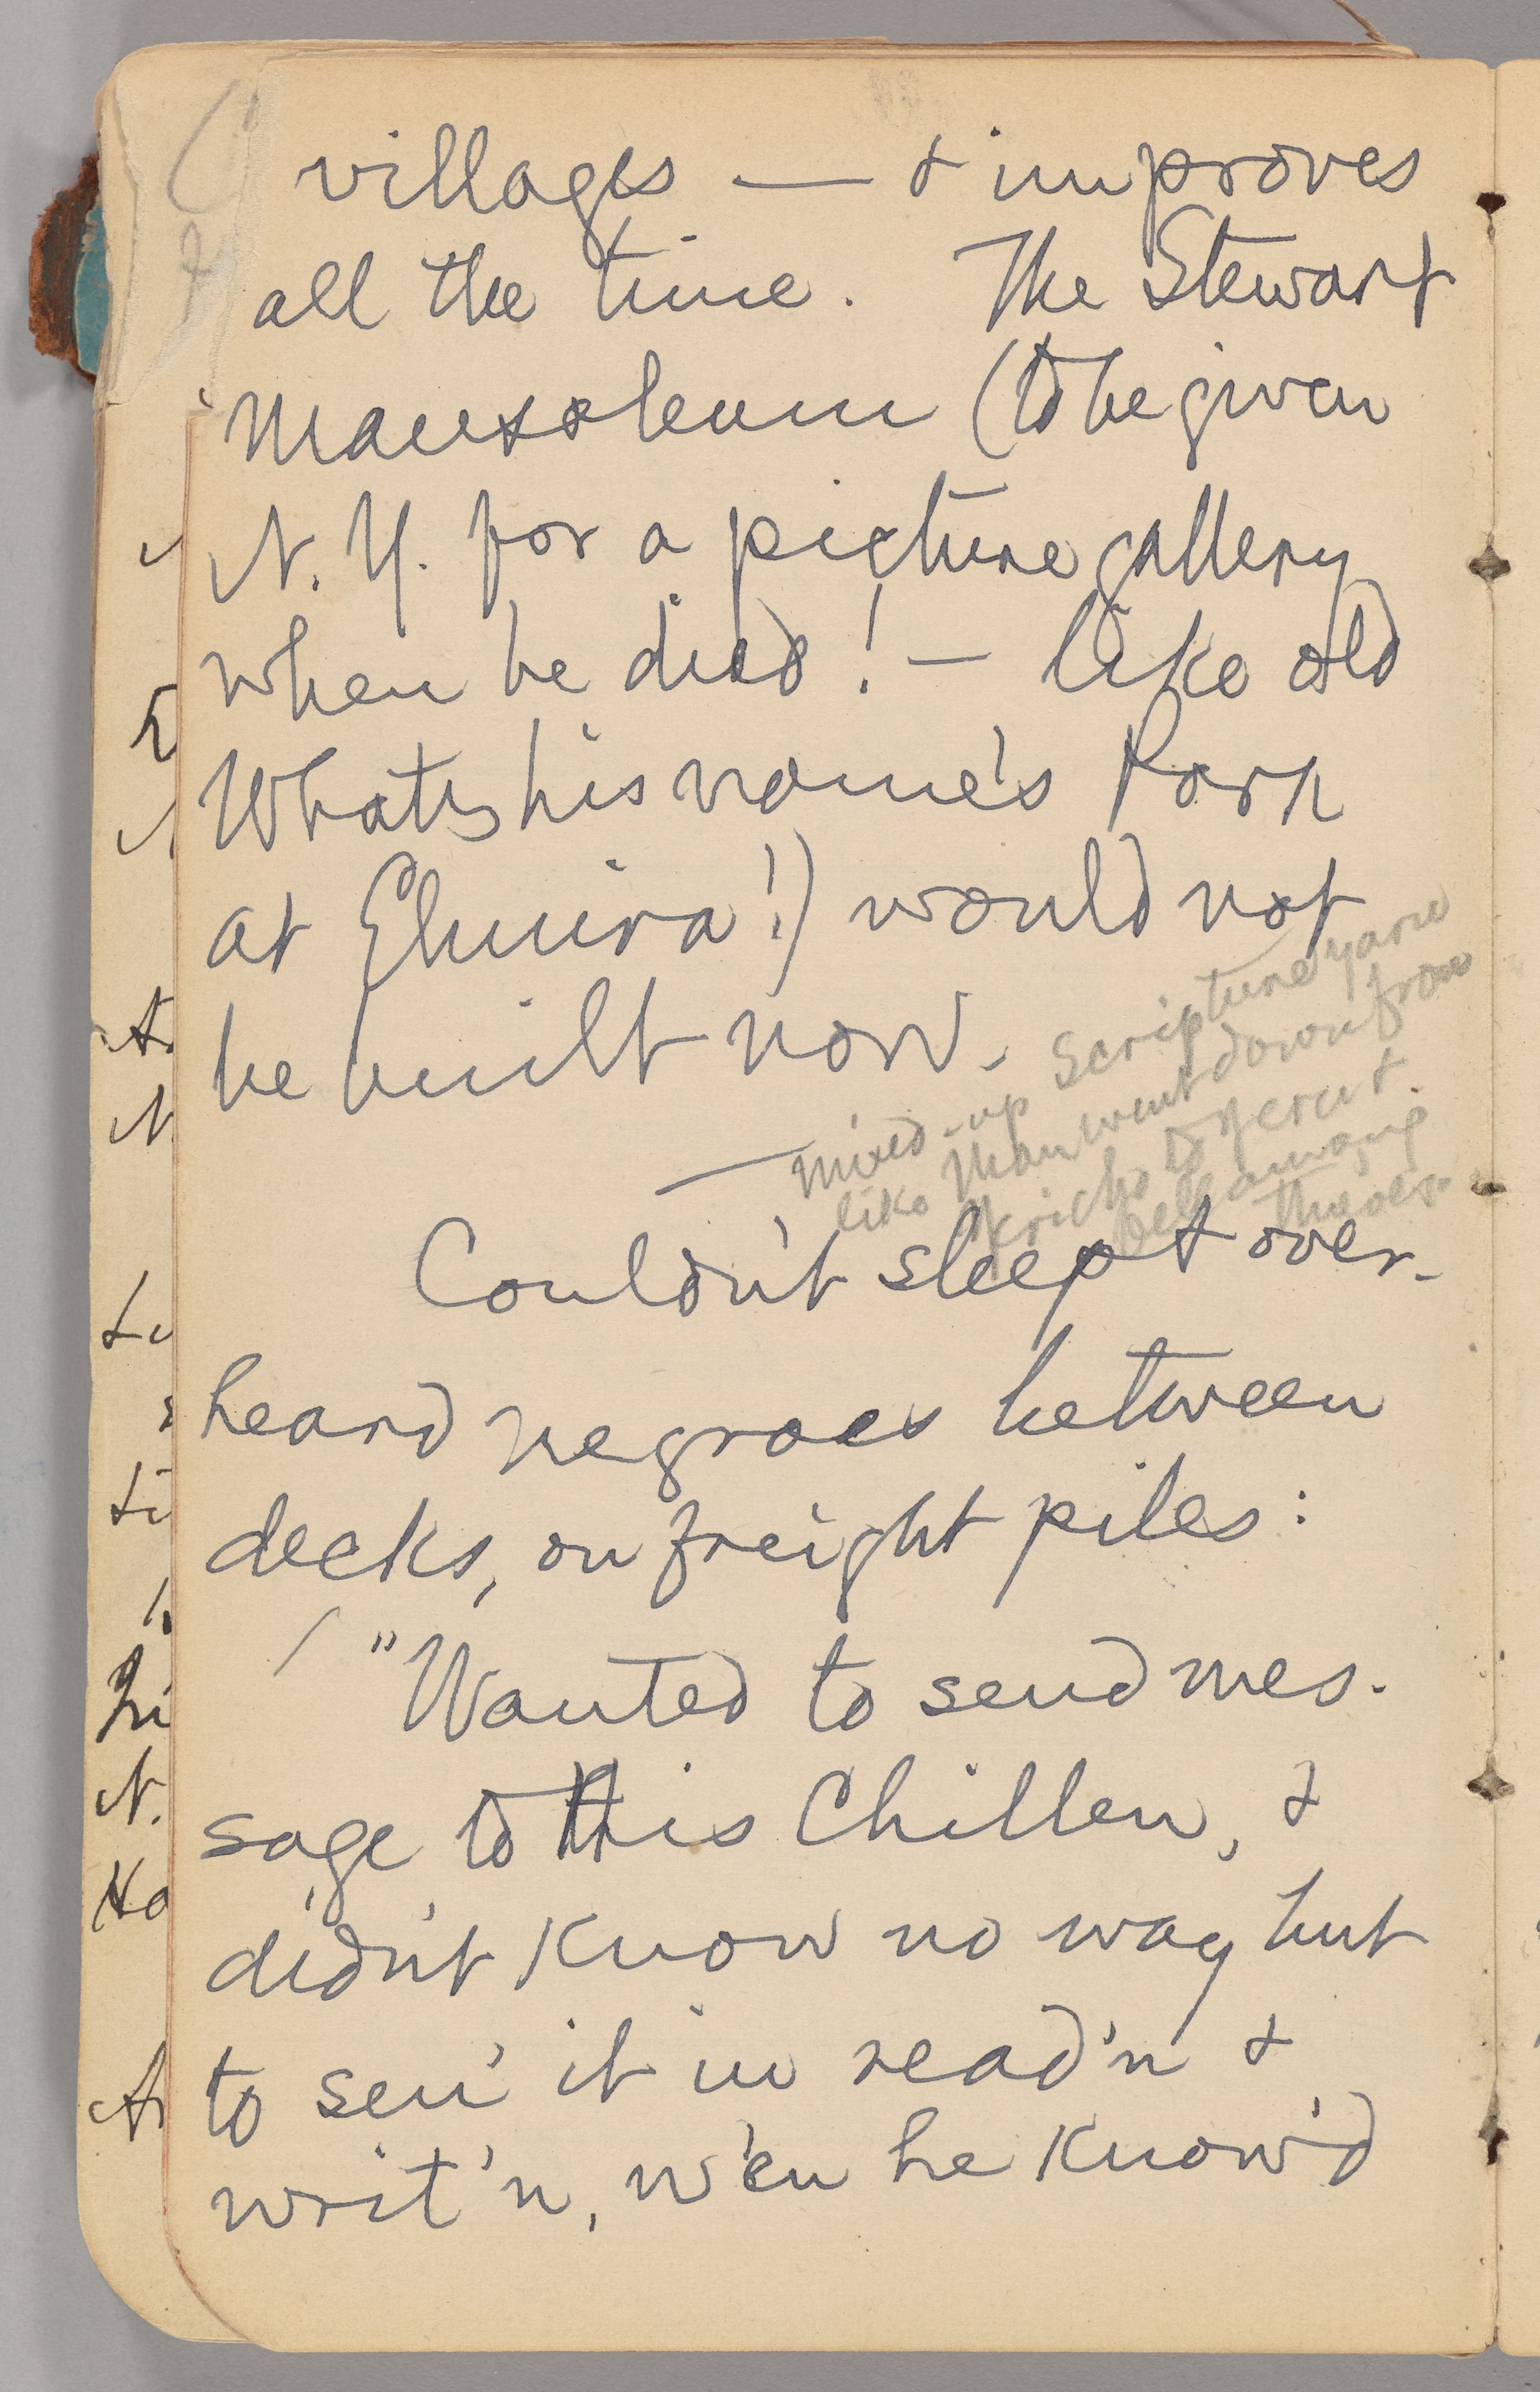 villages — & improves
all the time. The Stewart
Mausoleum (to be given
N. Y. for a picture gallery
when he died! — like old
Whatshisname's Park
at Elmira!) would not
be built now.
— mixed-up Scripture yarn
like Man went down from
Jericho to Jerus &
fell among
thieves.
Couldn't sleep & over-
heard negroes between
decks, on freight piles:
"Wanted to send mes-
sage to His Chillen, &
didn't know no way but
to sen' it in read'n &
writ'n, w'en he know'd